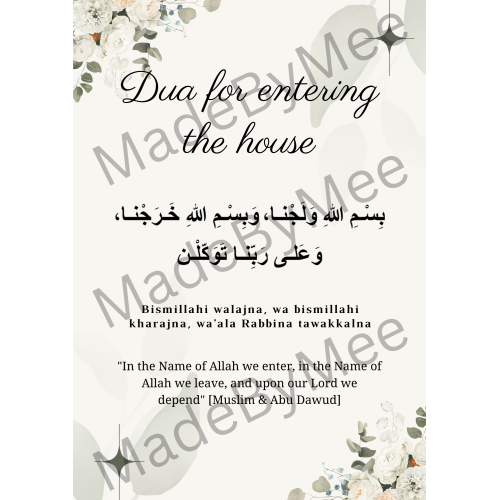 Dua for entering
the house
بِسْمِ اللهِ وَلَجْنَـا، وَبِسْـمِ اللهِ خَـرَجْنـا،
وَعَلَـى رَبِّنـا تَوَكَّلْـن
Bismillahi walajna, wa bismillahi
kharajna, wa'ala Rabbina tawakkalna
"In the Name of Allah we enter, in the Name of
Allah we leave, and upon our Lord we
depend" [Muslim & Abu Dawud]
MadeByMee
MadeByMee
MadeByMee
MadeByMee